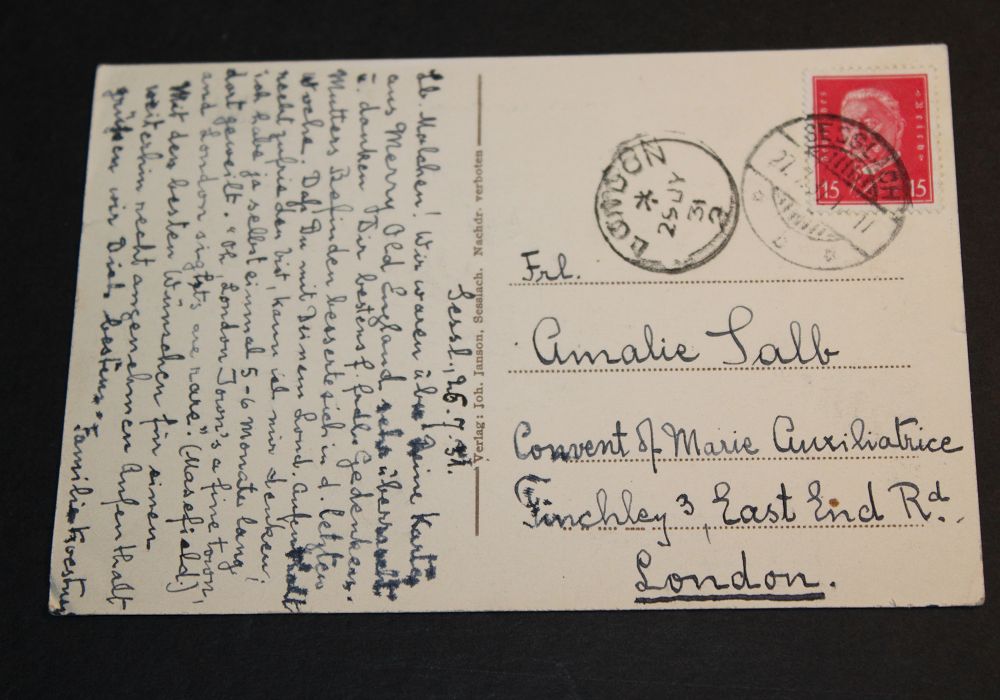 Sessl., 26.7.31.
Lb. Malchen! Wir waren über Deine Karte
aus Merry Old England sehr überrascht
u. danken Dir bestens f. frdl. Gedenken.
Mutters Befinden besserte sich in d. letzten
Woche. Daß Du mit Deinem Lond. Aufenthalt
recht zufrieden bist, kann ich mir denken;
ich habe ja selbst einmal 5-6 Monate lang
dort geweilt. "Oh London Town's a fine town,
and London sights are rare." (Masefield)
Mit den besten Wünschen für einen
weiterhin recht angenehmen Aufenthalt
grüßen wir Dich bestens.
Familie
Verlag: Joh. Janson, Sesslach. Nachdr. verboten
LONDON
25 JY
31
SESSLACH
15 15
Frl.
Amalie Salb
Convent of Marie Auxiliatrice
Finchley 3, East End Rd.,
London.